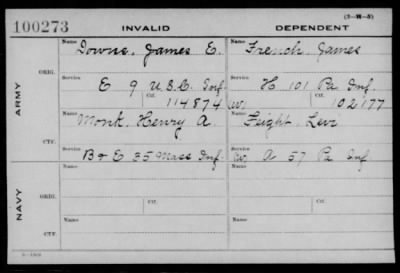 (3-M-5)
100273 INVALID DEPENDENT
Name Downs, James E. Name French, James
ORIG. Service E 9 U.S.C. Inf. Service H 101 Pa Inf.
Ctf. 114874 W. Ctf. 102177
ARMY
Name Monk, Henry A. Name Feight, Levi
CTF. Service B & E 35 Mass Inf. Service W. A 57 Pa Inf
NAVY
Name Name
ORIG. Service Ctf. Service Ctf.
Name Name
CTF.